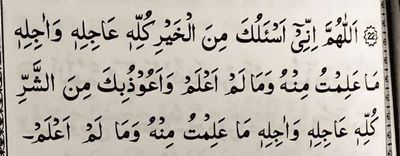 ﴿22﴾ اَللّٰهُمَّ اِنِّىْٓ اَسْئَلُكَ مِنَ الْخَيْرِ كُلِّهٖ عَاجِلِهٖ وَاٰجِلِهٖ
مَا عَلِمْتُ مِنْهُ وَمَا لَمْ اَعْلَمْ وَاَعُوْذُبِكَ مِنَ الشَّرِّ
كُلِّهٖ عَاجِلِهٖ وَاٰجِلِهٖ مَا عَلِمْتُ مِنْهُ وَمَا لَمْ اَعْلَمْ۔